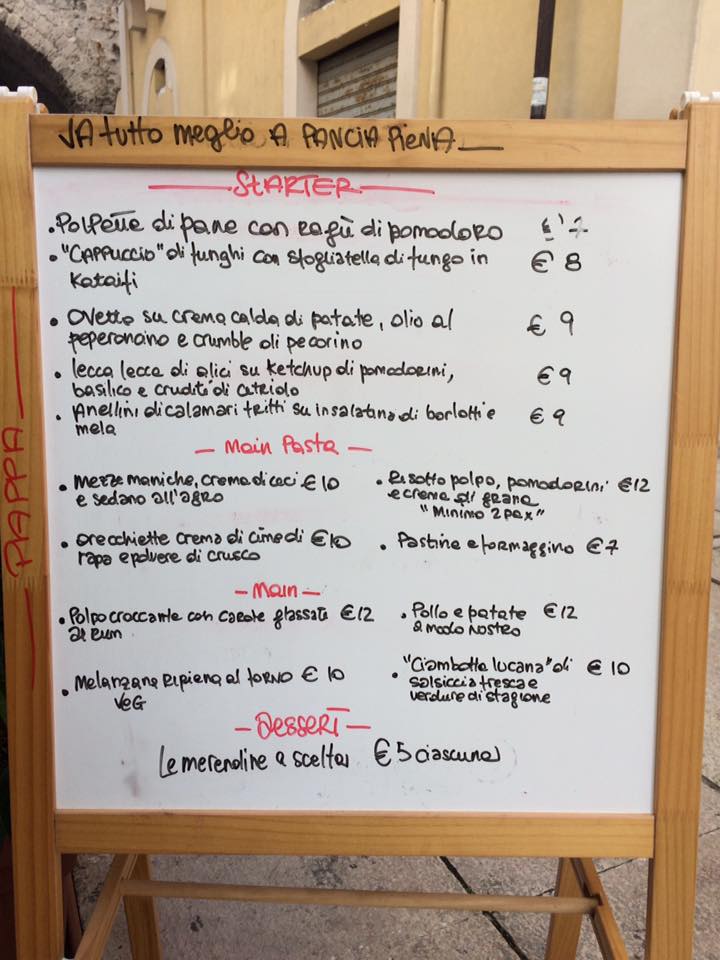 VA tutto meglio A PANCIA PIENA
PAPPA
STARTER
• Polpette di pane con ragù di pomodoro € 7
• "CAPPUCCIO" di funghi con sfogliatella di fungo in € 8
Kataifi
• Ovetto su crema calda di patate, olio al € 9
peperoncino e crumble di pecorino
• lecca lecca di alici su ketchup di pomodorini, € 9
basilico e crudité di cetriolo
• Anellini di calamari fritti su insalatina di borlotti e € 9
mela
- Main Pasta -
• Mezze maniche, crema di ceci € 10
e sedano all'agro
• Risotto polpo, pomodorini € 12
e crema di grana
"Minimo 2 pax"
• orecchiette crema di cime di € 10
rapa e polvere di crusco
• Pastina e formaggino € 7
- Main -
• Polpo croccante con carote glassate € 12
al Rum
• Pollo e patate € 12
a modo nostro
• Melanzana Ripiena al forno € 10
VeG
• "Ciambotta lucana" di € 10
salsiccia fresca e
verdure di stagione
- Dessert -
Le merendine a scelta € 5 ciascuna